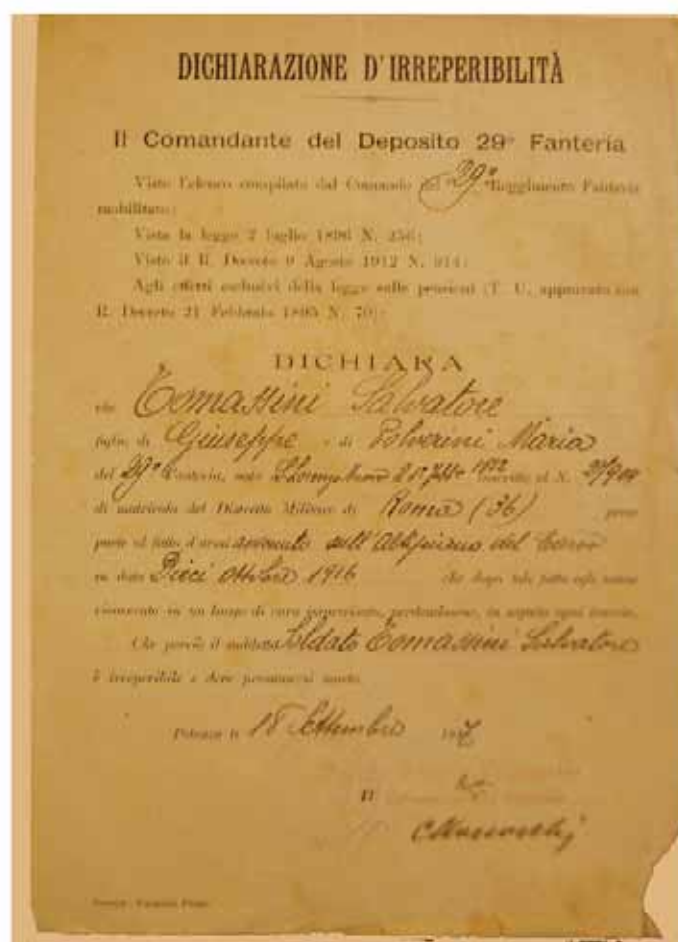 DICHIARAZIONE D'IRREPERIBILITÀ
Il Comandante del Deposito 29° Fanteria
Visto l'elenco compilato dal Comando del 29° Reggimento Fanteria
mobilitato;
Vista la legge 2 luglio 1896 N. 256;
Visto il R. Decreto 9 Agosto 1912 N. 914;
Agli effetti esclusivi della legge sulle pensioni (T. U. approvato con
R. Decreto 21 Febbraio 1895 N. 70);
DICHIARA
che Tomassini Salvatore
figlio di Giuseppe e di Polverini Maria
del 29° Fanteria, nato il 1872 inscritto al N.
di matricola del Distretto Militare di Roma (36) prese
parte al fatto d'armi avvenuto sull'Altipiano del Carso
in data Dieci Ottobre 1916 che dopo tale fatto egli venne
ricoverato in un luogo di cura
Che perciò il suddetto Soldato Tomassini Salvatore
è irreperibile e deve presumersi morto.
Potenza li 18 Settembre 1917
Il